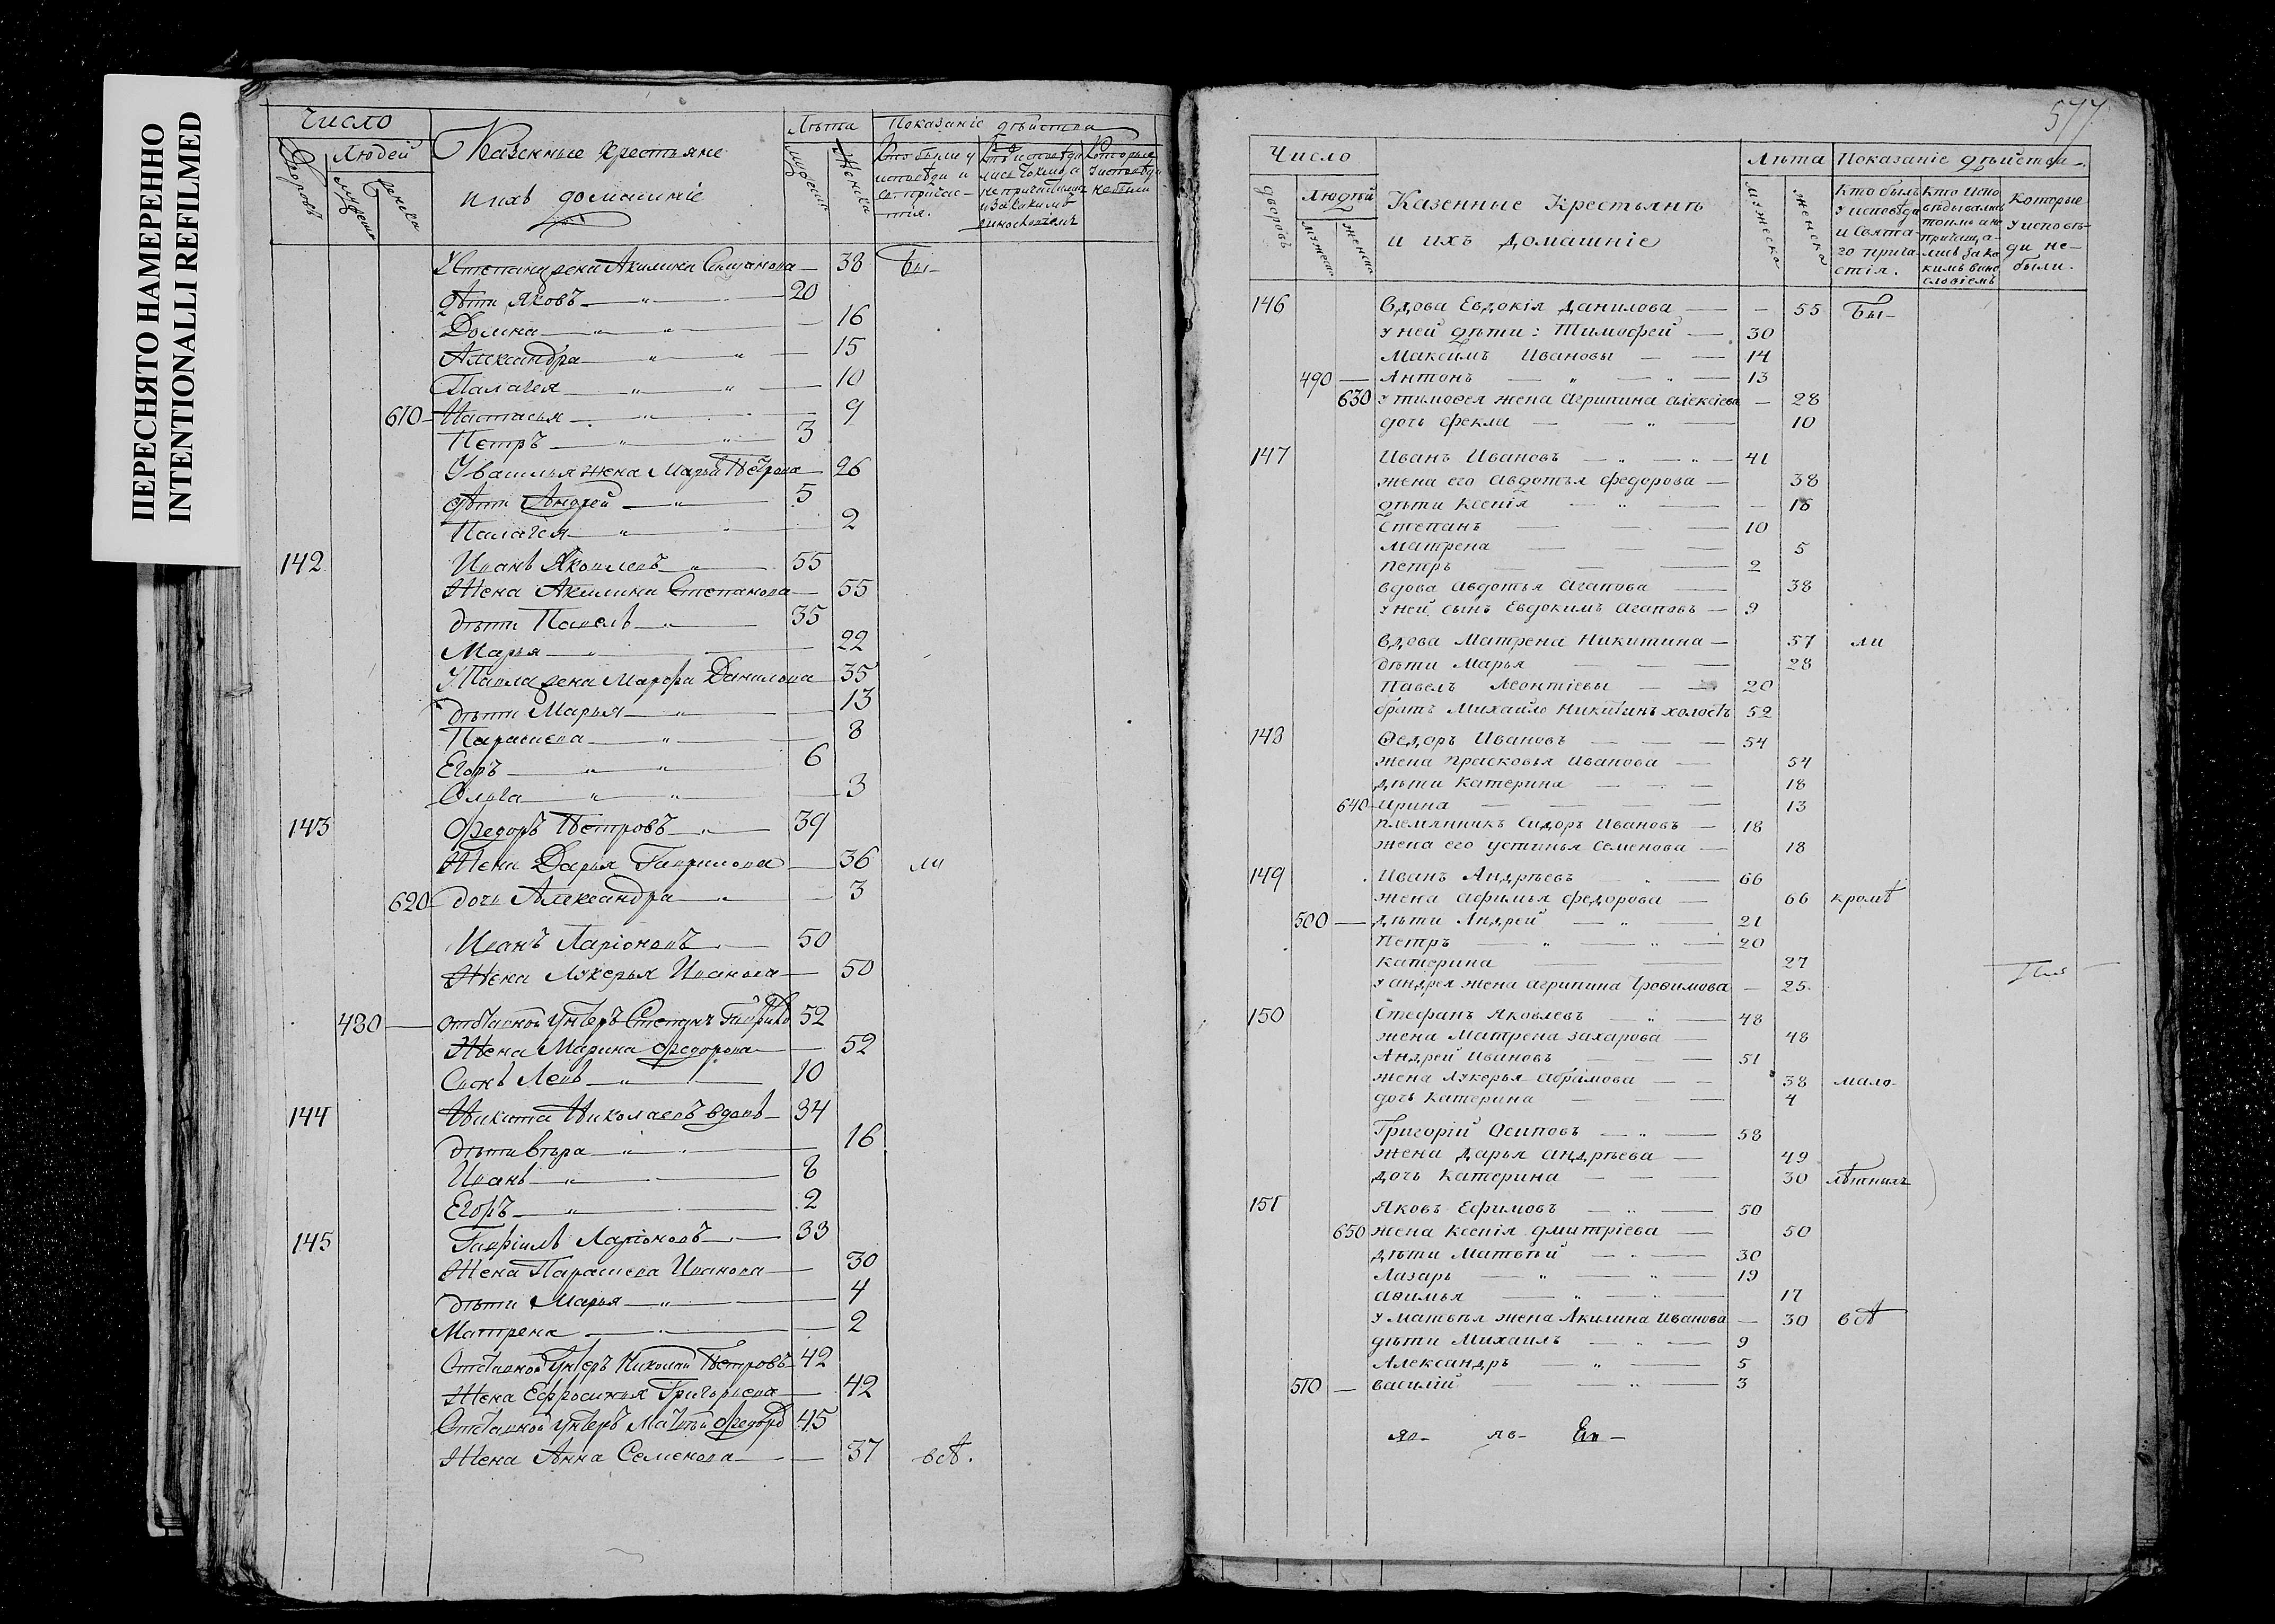 ПЕРЕСНЯТО НАМЕРЕННО
INTENTIONALLI REFILMED
Число
Дворовъ
Людей
мужеска
женска
Казенные Крестьяне
и ихъ домашніе
Лѣта
мужеска
женска
Показаніе дѣйства
Кто были у исповѣди и св. причастія.
Которыя у исповѣди не были
У Степана жена Акилина 38 Бы-
дѣти Яковъ 20
Домна 16
Александра 15
Палагея 10
610 Настасья 9
Петръ 3
У Василья жена Марья Петрова 26
дѣти Андрей 5
Палагея 2
142 Иванъ Яковлевъ 55
Жена Акилина Степанова 55
дѣти Павелъ 35
Марья 22
У Павла жена Марфа Данилова 35
дѣти Марья 13
Парасцева 8
Егоръ 6
Ольга 3
143 Федоръ Петровъ 39
Жена Дарья Гаврилова 36 ли
620 дочь Александра 3
Иванъ Ларіоновъ 50
Жена Лукерья Иванова 50
480 Отставной унтеръ Степанъ 52
Жена Марина Федорова 52
Сынъ Левъ 10
144 Никита Николаевъ вдовъ 34
дѣти Вѣра 16
Иванъ 8
Егоръ 2
145 Гавріилъ Ларіоновъ 33
Жена Парасцева Иванова 30
дѣти Марья 4
Матрена 2
Отставной унтеръ Николай Петровъ 42
Жена Ефросинья Григорьева 42
Отставной унтеръ Матвѣй Федоро 45
Жена Анна Семенова 37 всѣ.
577
Число
дворовъ
Людѣй
мужеска
женска
Казенные Крестьянѣ
и ихъ домашніе
Лѣта
мужеска
женска
Показаніе дѣйства.
Кто былъ у исповѣди и Святаго причастія.
Кто исповѣдывались токмо и не причащались за какимъ винословіемъ
Которые у исповѣди не были.
146 Вдова Евдокія Данилова 55 Бы-
У ней дѣти: Тимофей 30
Максимъ Ивановы 14
490 Антонъ 13
630 у тимофея жена Агрипина алексіева 28
дочь Фекла 10
147 Иванъ Ивановъ 41
жена его Авдотья федорова 38
дѣти Ксенія 18
Степанъ 10
Матрена 5
Петръ 2
вдова Авдотья Агапова 38
у ней сынъ Евдокимъ Агаповъ 9
вдова Матрена Никитина 57 ли
дѣти Марья 28
Павелъ Леонтіевы 20
братъ Михайло Никитинъ холостъ 52
148 Федоръ Ивановъ 54
жена Прасковья Иванова 54
дѣти Катерина 18
640 Ирина 13
племянникъ Сидоръ Ивановъ 18
жена его устинья Семенова 18
149 Иванъ Андрѣевъ 66
жена Афимья федорова 66 кромѣ
500 дѣти Андрей 21
Петръ 20
Катерина 27
у андрея жена агрипина Трофимова 25
150 Стефанъ Яковлевъ 48
жена Матрена Захарова 48
Андрей Ивановъ 51
жена Лукерья Абрамова 38 мало-
дочь Катерина 4
Григорій Осиповъ 58
жена Дарья андрѣева 49
дочь Катерина 30 лѣтнихъ
151 Яковъ Ефимовъ 50
650 жена Ксенія дмитріева 50
дѣти Матвѣй 30
Лазарь 19
Афимья 17
у матвѣя жена Акилина Иванова 30 всѣ
дѣти Михаилъ 9
Александръ 5
510 василій 3